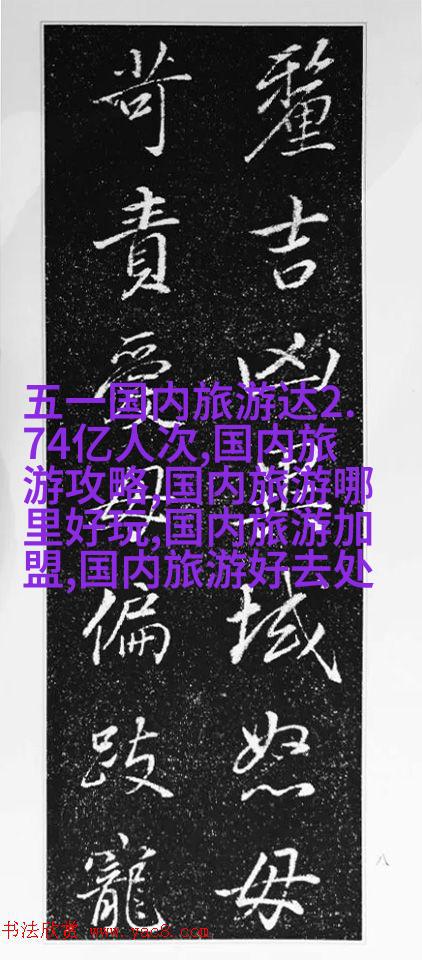 釐吉凶異域怒毋
苛責愛毋偏跂寵
五一国内旅游达2.
74亿人次,国内旅
游攻略,国内旅游哪
里好玩,国内旅游加
盟,国内旅游好去处
八
书法欣赏 www.yac8.com